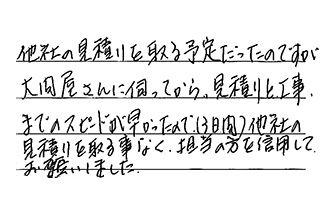 他社の見積りを取る予定だったのですが
大問屋さんに伺ってから、見積りと工事、
までのスピードが早かったので、(3日間)他社の
見積りを取る事なく、担当の方を信用して
お願いしました。